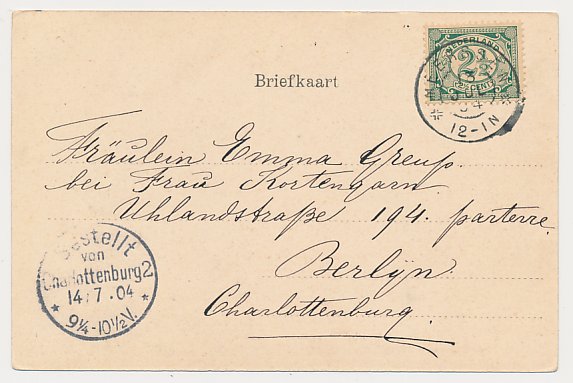 NEDERLAND
2½
CENT
12-1N
Briefkaart
Fräulein Emma Greup.
bei Frau Kortengarn
Uhlandstraße 194. parterre.
Berlijn.
Charlottenburg.
Bestellt
von
Charlottenburg 2
14/7.04
* 9¼-10½V. *